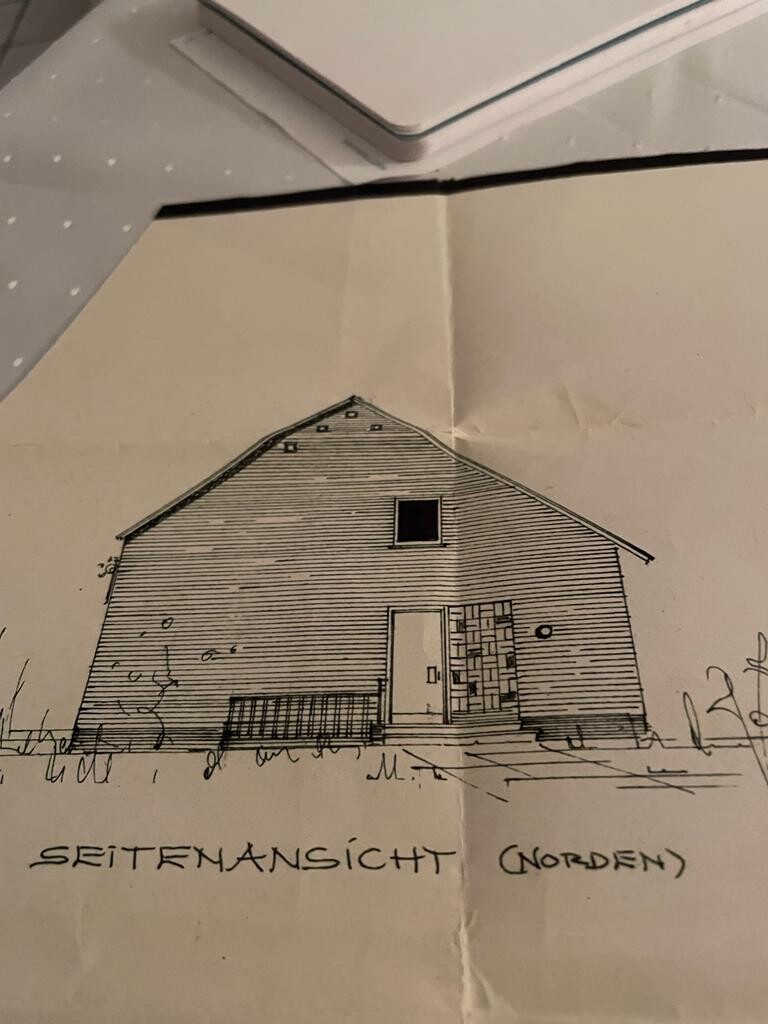 SEITENANSICHT (NORDEN)